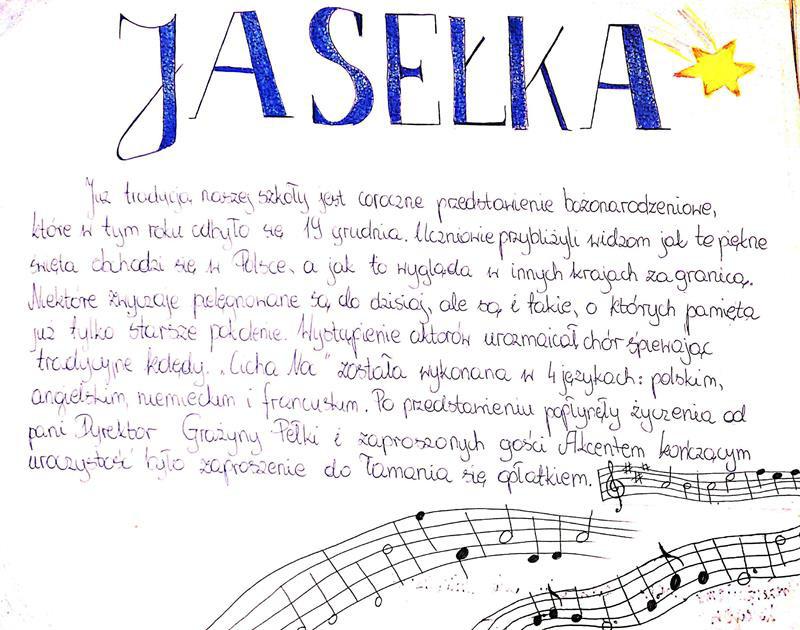 JASEŁKA
Już tradycją naszej szkoły jest coroczne przedstawienie bożonarodzeniowe,
które w tym roku odbyło się 19 grudnia. Uczniowie przybliżyli widzom jak te piękne
święta obchodzi się w Polsce, a jak to wygląda w innych krajach za granicą.
Niektóre zwyczaje pielęgnowane są do dzisiaj, ale są i takie, o których pamięta
już tylko starsze pokolenie. Wystąpienie aktorów urozmaicał chór śpiewając
tradycyjne kolędy. „Cicha Noc" została wykonana w 4 językach: polskim,
angielskim, niemieckim i francuskim. Po przedstawieniu popłynęły życzenia od
pani Dyrektor Grażyny Pełki i zaproszonych gości Akcentem kończącym
uroczystość było zaproszenie do łamania się opłatkiem.